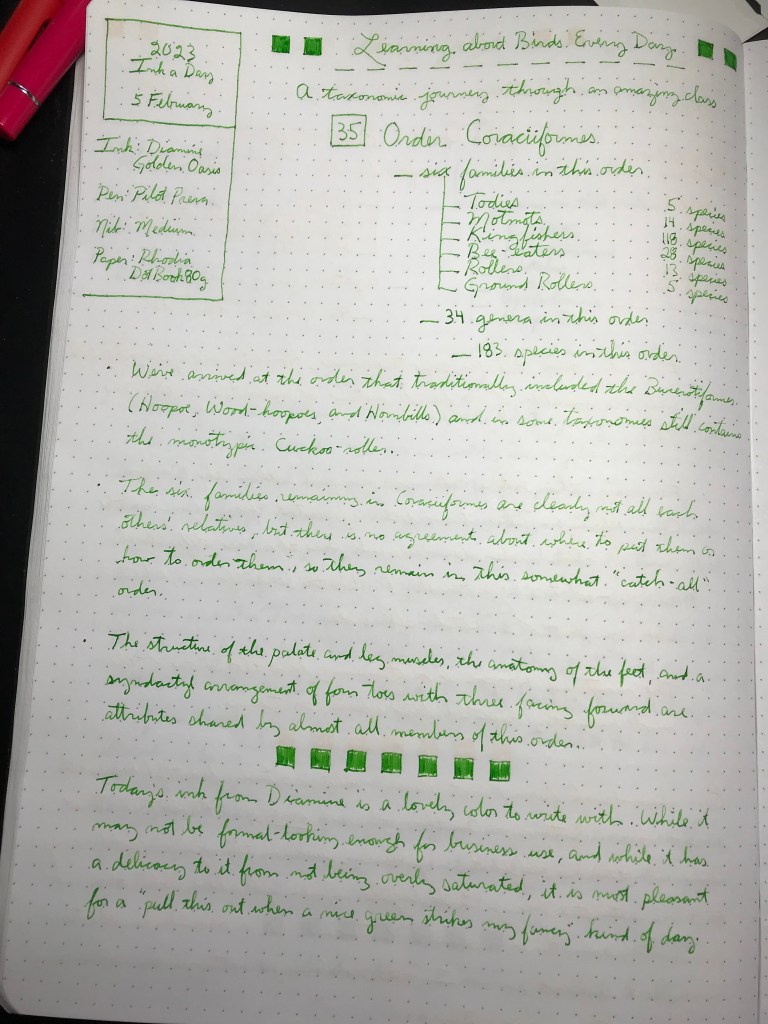 2023
Ink a Day
5 February
Ink: Diamine
Golden Oasis
Pen: Pilot Prera
Nib: Medium
Paper: Rhodia
Dot Book 80g
Learning about Birds Every Day
A taxonomic journey through an amazing class
35 Order Coraciiformes
— six families in this order
Todies 5 species
Motmots 14 species
Kingfishers 118 species
Bee-Eaters 28 species
Rollers 13 species
Ground Rollers 5 species
— 34 genera in this order
— 183 species in this order
· We've arrived at the order that traditionally included the Bucerotiformes
(Hoopoe, Wood-hoopoes, and Hornbills) and in some taxonomies still contains
the monotypic Cuckoo-roller.
· The six families remaining in Coraciiformes are clearly not all each
others' relatives, but there is no agreement about where to put them or
how to order them, so they remain in this somewhat "catch-all"
order.
· The structure of the palate and leg muscles, the anatomy of the feet, and a
syndactyl arrangement of four toes with three facing forward are
attributes shared by almost all members of this order.
Today's ink from Diamine is a lovely color to write with. While it
may not be formal-looking enough for business use, and while it has
a delicacy to it from not being overly saturated, it is most pleasant
for a "pull this out when a nice green strikes my fancy" kind of day.